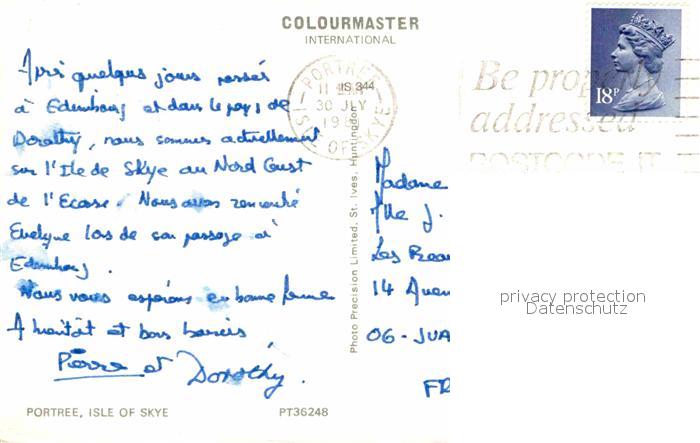 COLOURMASTER
INTERNATIONAL
Après quelques jours passés
à Edimbourg et dans le pays de
Dorothy, nous sommes actuellement
sur l'Ile de Skye au Nord Ouest
de l'Ecosse. Nous avons rencontré
Evelyne lors de son passage à
Edimbourg.
Nous vous espérons en bonne forme
A bientôt et bons baisers
Pierre et Dorothy.
PORTREE, ISLE OF SKYE
PT36248
Photo Precision Limited, St. Ives, Huntingdon
IS 344
PORTREE
30 JLY
ISLE OF SKYE
Be properly
addressed
POSTCODE IT
18P
Madame
Mlle J.
Les
14
06 - JUA
FR
privacy protection
Datenschutz